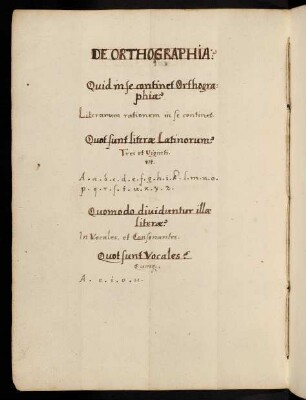 DE ORTHOGRAPHIA.
Quid in se continet Orthogra-
phia?
Literarum rationem in se continet.
Quot sunt literæ Latinorum?
Tres et Viginti.
ut.
A. a. b. c. d. e. f. g. h. i. k. l. m. n. o.
p. q. r. s. t. u. x. y. z.
Quomodo dividuntur illæ
literæ?
In Vocales. et Consonantes.
Quot sunt Vocales?
A. e. i. o. u.